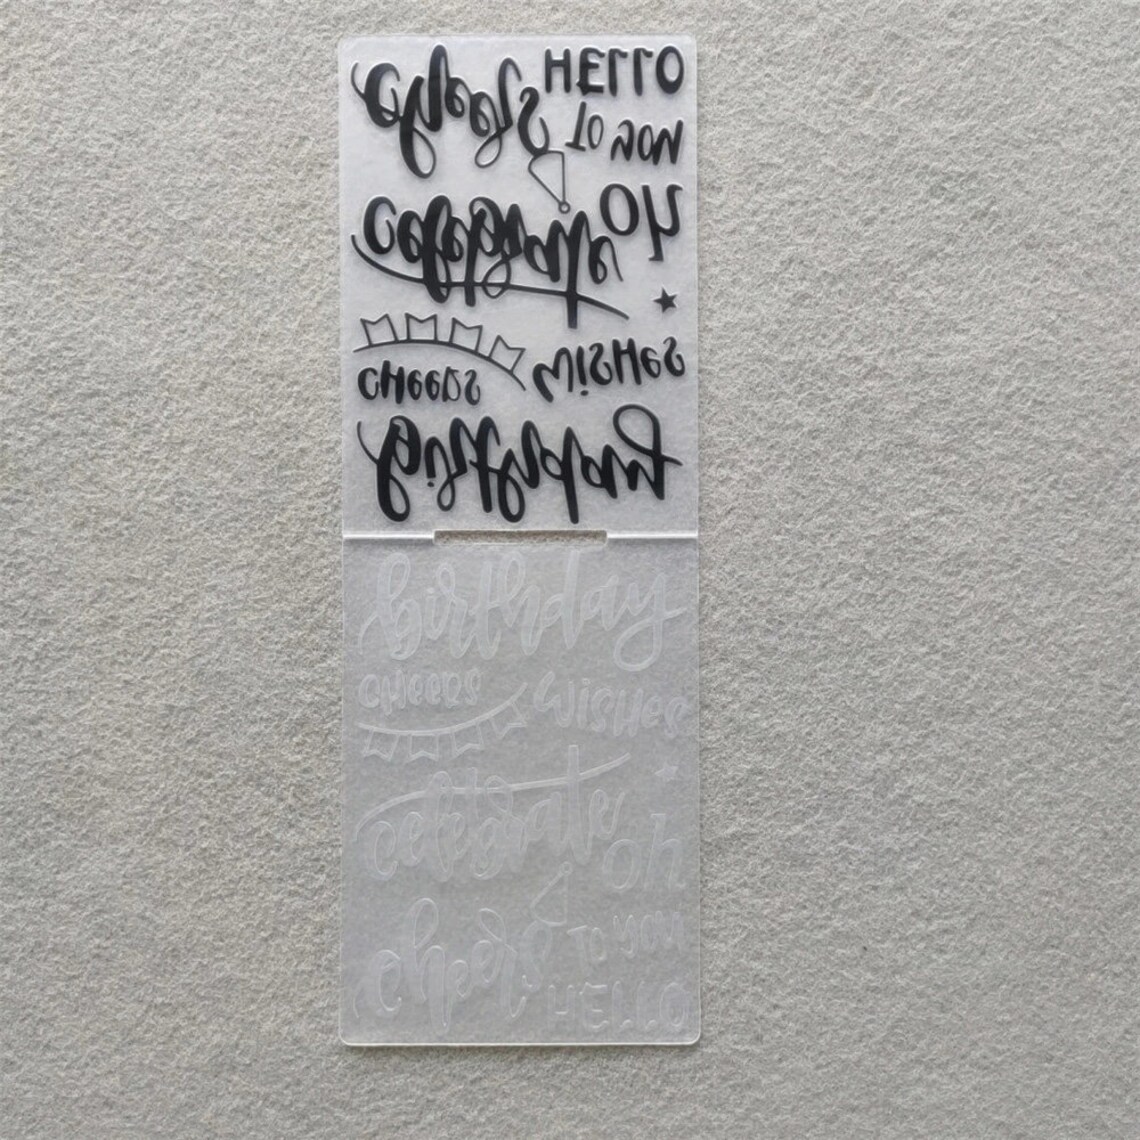 cheers HELLO
TO YOU
oh
celebrate
CHEERS WISHES
birthday
birthday
CHEERS WISHES
celebrate
oh
cheers TO YOU
HELLO